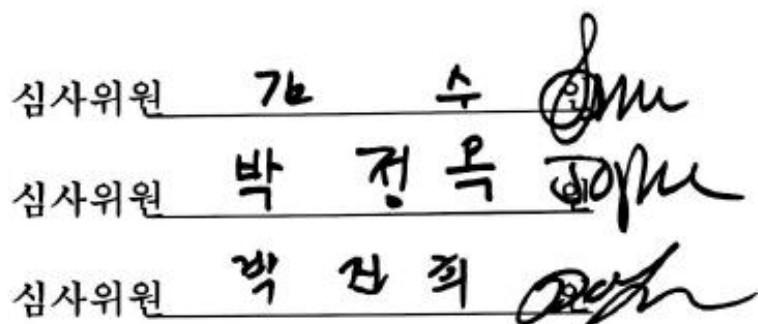 심사위원 김 수 인
심사위원 박 정 옥 인
심사위원 박 진 희 인